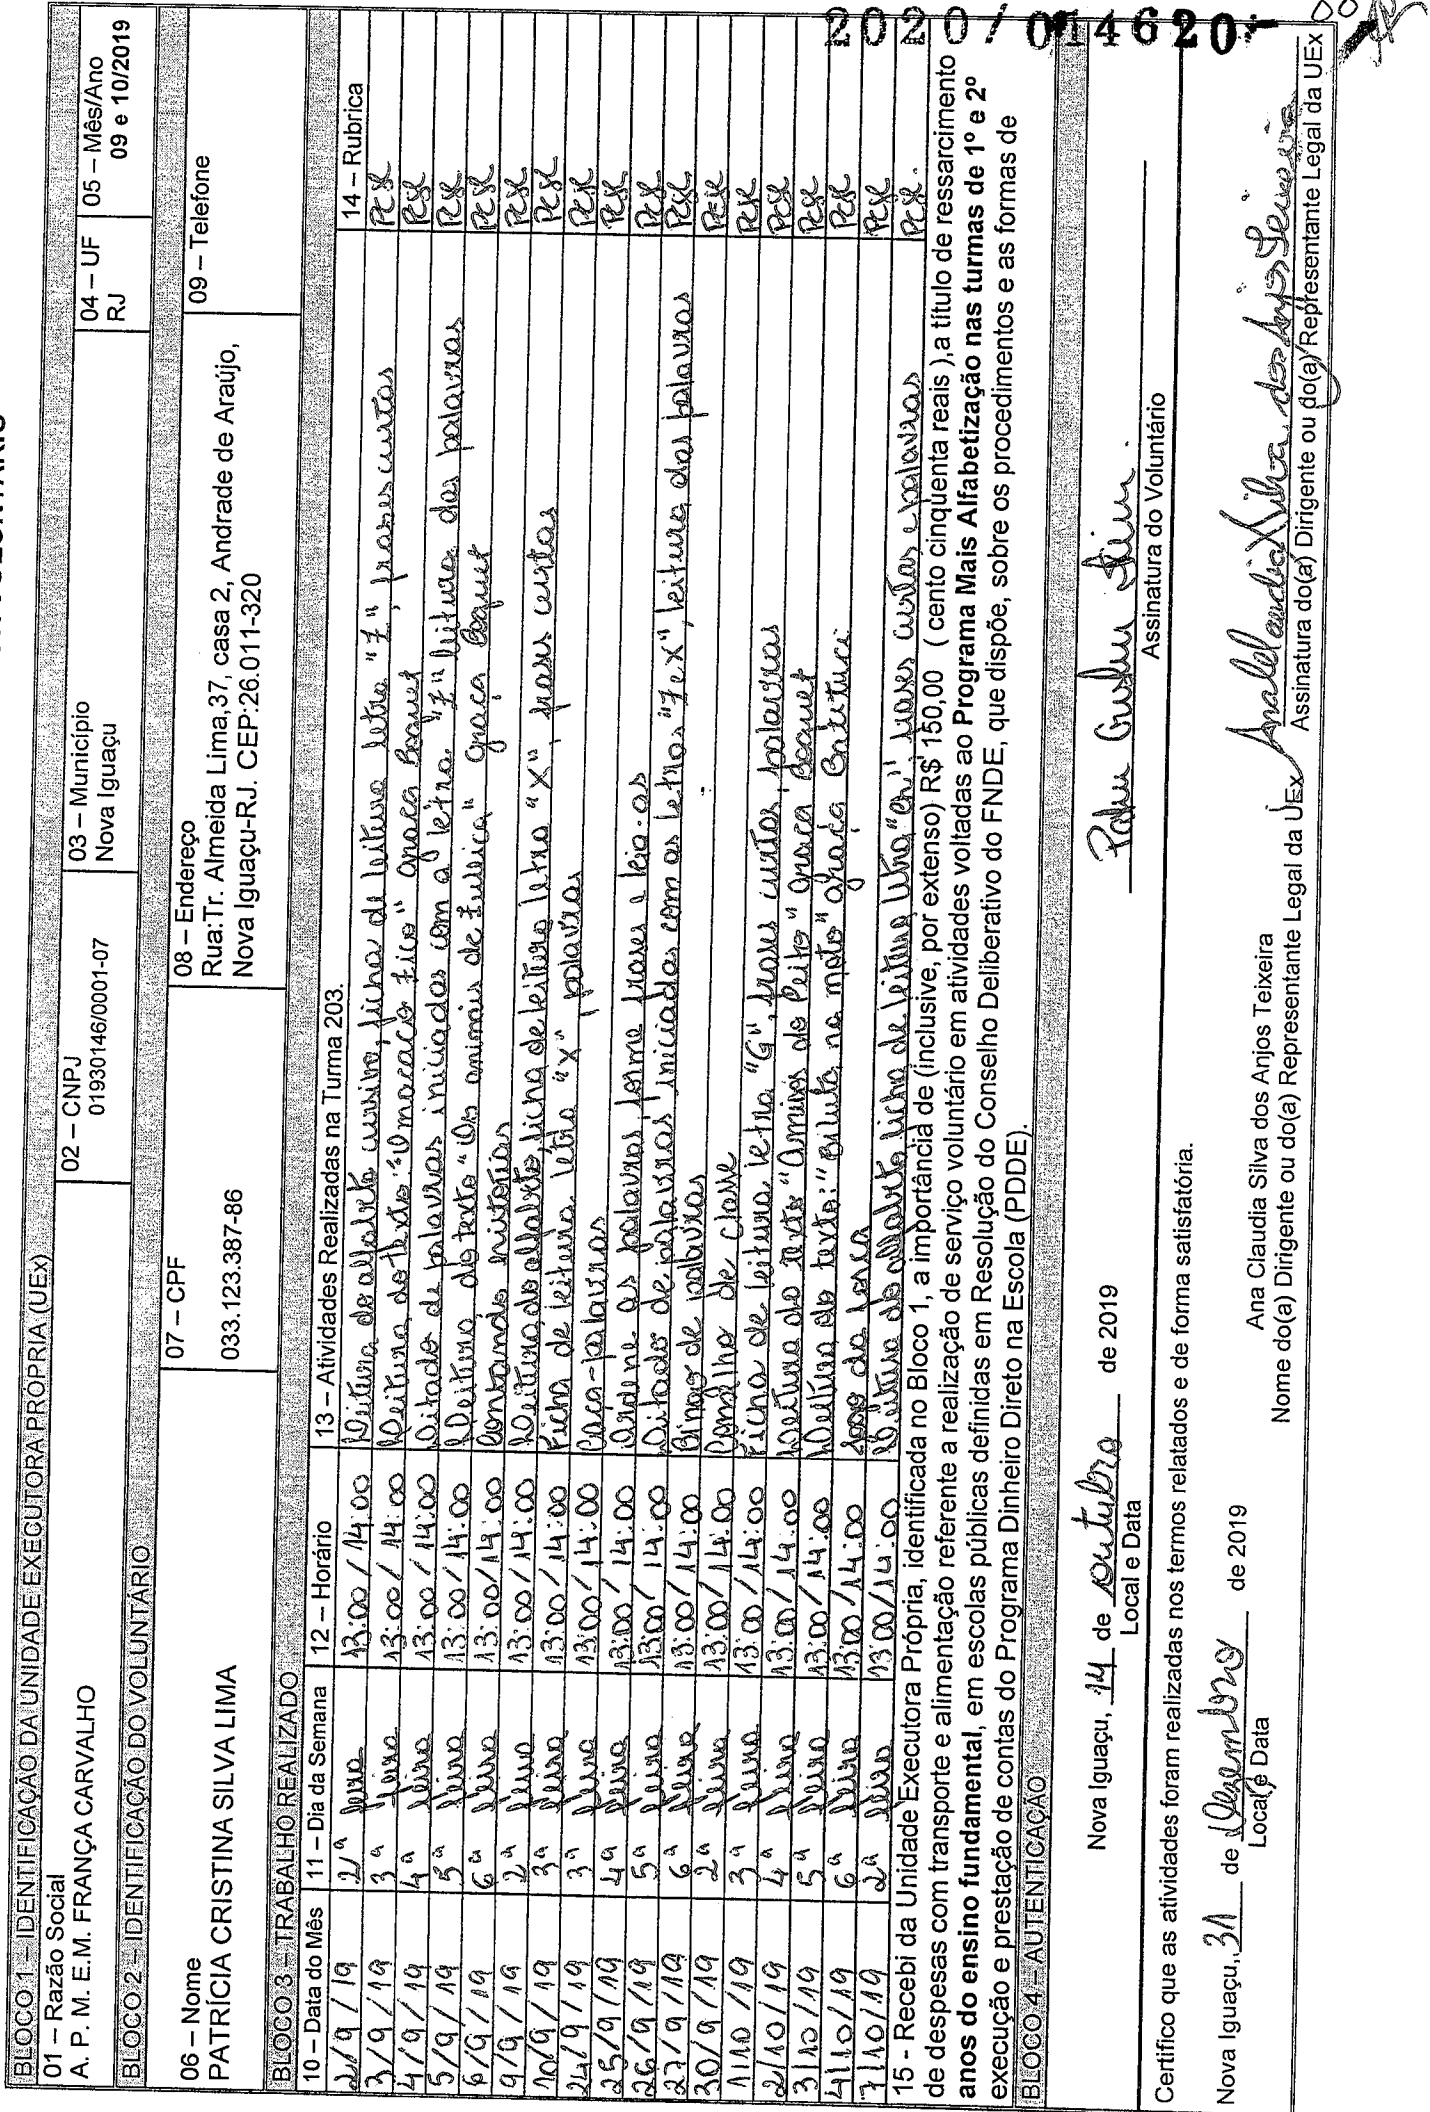 BLOCO 1 – IDENTIFICAÇÃO DA UNIDADE EXECUTORA PRÓPRIA (UEx)
01 – Razão Social
A. P. M. E.M. FRANÇA CARVALHO
02 – CNPJ
01930146/0001-07
03 – Município
Nova Iguaçu
04 – UF
RJ
05 – Mês/Ano
09 e 10/2019
BLOCO 2 – IDENTIFICAÇÃO DO VOLUNTÁRIO
06 – Nome
PATRÍCIA CRISTINA SILVA LIMA
07 – CPF
033.123.387-86
08 – Endereço
Rua:Tr. Almeida Lima,37, casa 2, Andrade de Araújo,
Nova Iguaçu-RJ. CEP:26.011-320
09 – Telefone
BLOCO 3 – TRABALHO REALIZADO
10 – Data do Mês 11 – Dia da Semana 12 – Horário 13 – Atividades Realizadas na Turma 203. 14 – Rubrica
2/9/19 2ª feira 13:00/14:00 Leitura do alfabeto cursivo, ficha de leitura letra "Z", frases curtas PCSL
3/9/19 3ª feira 13:00/14:00 Leitura do texto "O macaco Zico" graça Boquet PCSL
4/9/19 4ª feira 13:00/14:00 Ditado de palavras iniciadas com a letra "Z" leitura das palavras PCSL
5/9/19 5ª feira 13:00/14:00 Leitura do texto "Os animais de Zuleica" graça Boquet PCSL
6/9/19 6ª feira 13:00/14:00 Contando histórias PCSL
9/9/19 2ª feira 13:00/14:00 Leitura do alfabeto, ficha de leitura letra "X", frases curtas PCSL
10/9/19 3ª feira 13:00/14:00 Ficha de leitura letra "X" palavras PCSL
24/9/19 3ª feira 13:00/14:00 Caça-palavras PCSL
25/9/19 4ª feira 13:00/14:00 Ordene as palavras forme frases e leia-as PCSL
26/9/19 5ª feira 13:00/14:00 Ditado de palavras iniciadas com as letras "Z e X", leitura das palavras PCSL
27/9/19 6ª feira 13:00/14:00 Bingo de palavras PCSL
30/9/19 2ª feira 13:00/14:00 Conselho de classe PCSL
1/10/19 3ª feira 13:00/14:00 Ficha de leitura letra "G", frases curtas, palavras PCSL
2/10/19 4ª feira 13:00/14:00 Leitura do texto "Amigos do Peito" graça Boquet PCSL
3/10/19 5ª feira 13:00/14:00 Leitura do texto: "Biluto na moto" graça PCSL
4/10/19 6ª feira 13:00/14:00 Jogo da forca PCSL
7/10/19 2ª feira 13:00/14:00 Leitura do alfabeto, ficha de leitura letra "ch", frases curtas, e palavras PCSL.
15 - Recebi da Unidade Executora Própria, identificada no Bloco 1, a importância de (inclusive, por extenso) R$ 150,00 ( cento cinquenta reais ),a título de ressarcimento
de despesas com transporte e alimentação referente a realização de serviço voluntário em atividades voltadas ao Programa Mais Alfabetização nas turmas de 1º e 2º
anos do ensino fundamental, em escolas públicas definidas em Resolução do Conselho Deliberativo do FNDE, que dispõe, sobre os procedimentos e as formas de
execução e prestação de contas do Programa Dinheiro Direto na Escola (PDDE).
BLOCO 4 – AUTENTICAÇÃO
Nova Iguaçu, 14 de outubro de 2019
Local e Data
Assinatura do Voluntário
Certifico que as atividades foram realizadas nos termos relatados e de forma satisfatória.
Nova Iguaçu, 31 de Dezembro de 2019
Local e Data
Ana Claudia Silva dos Anjos Teixeira
Nome do(a) Dirigente ou do(a) Representante Legal da UEx
Ana Claudia Silva dos Anjos Teixeira
Assinatura do(a) Dirigente ou do(a) Representante Legal da UEx
2020/014620-